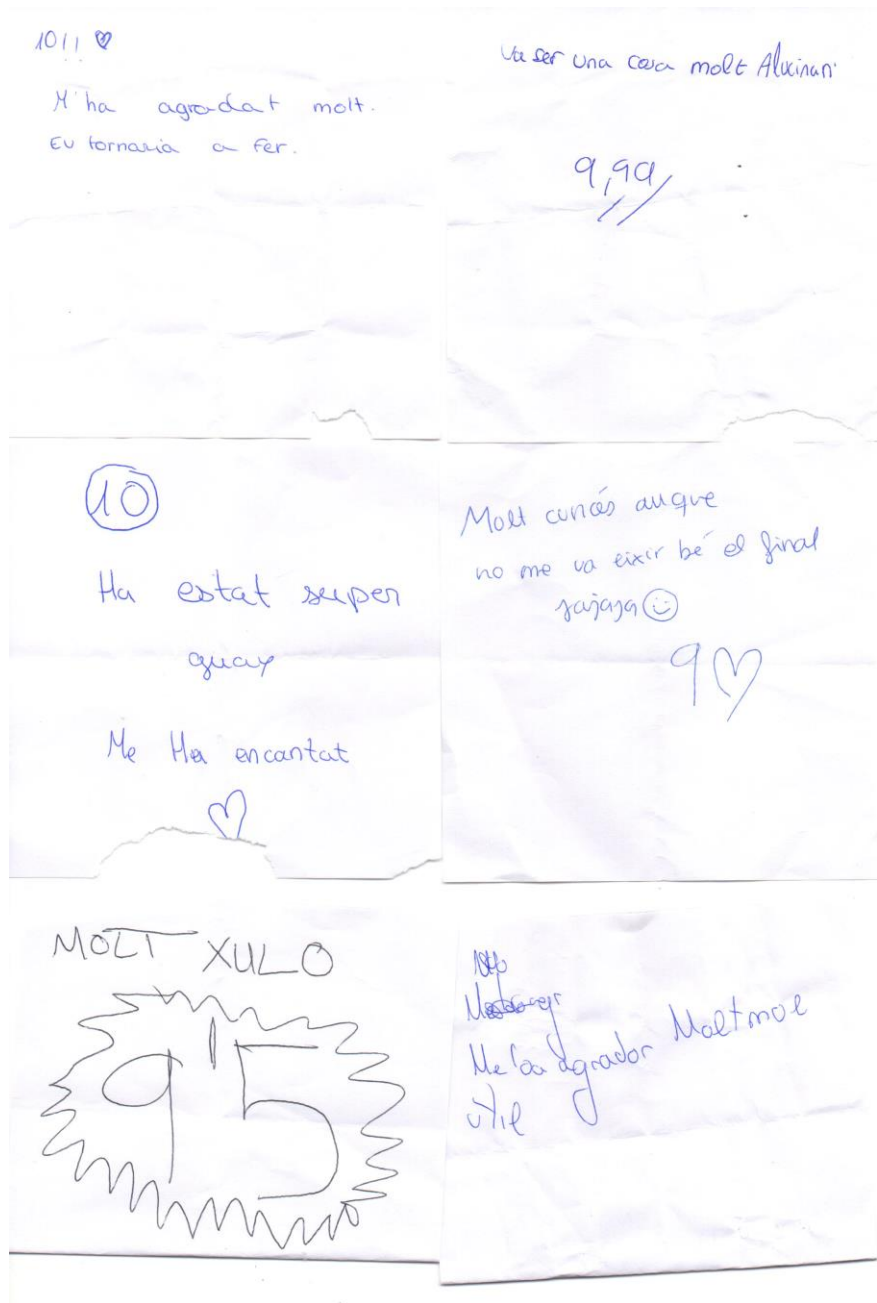 10!! ♡
M'ha agradat molt.
Eu tornaria a Fer.
Va ser una cosa molt Alucinant
9,99
10
Ha estat super
guay
Me Ha encantat
♡
Molt curiós auque
no me va eixir bé el final
jajaja ☺
9 ♡
MOLT XULO
9'5
agrador Molt
útil